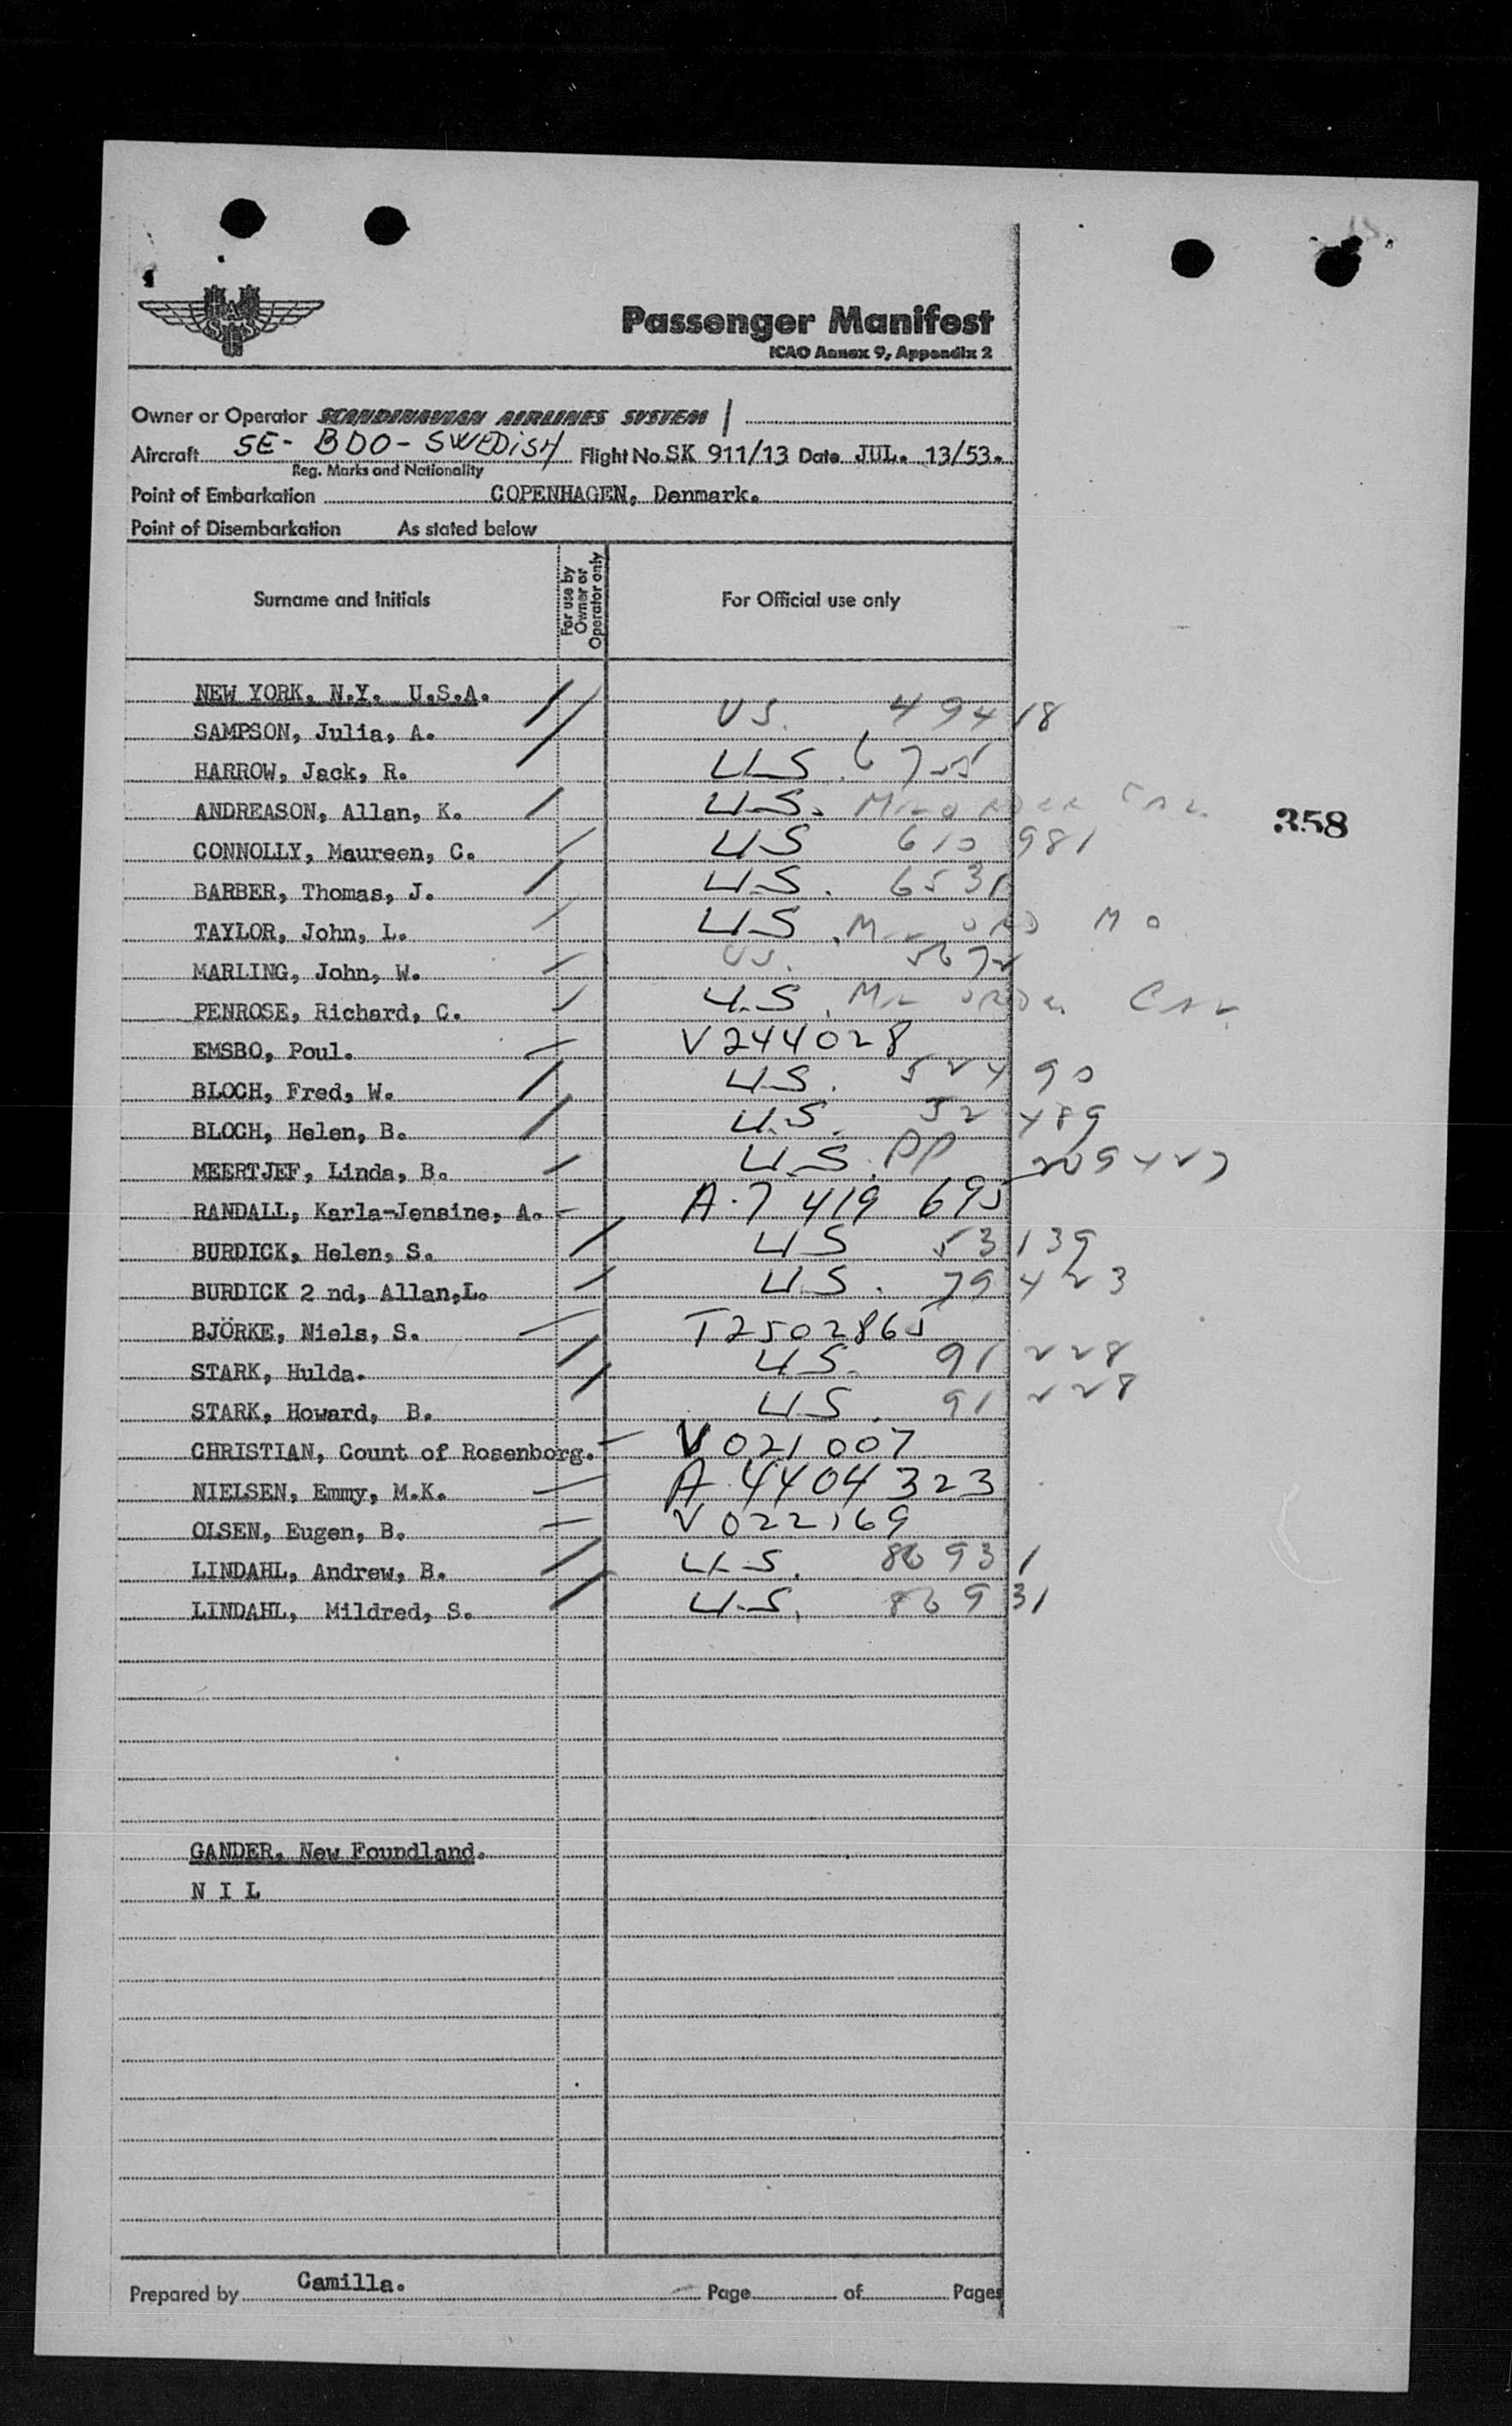 SAS
Passenger Manifest
ICAO Annex 9, Appendix 2
Owner or Operator SCANDINAVIAN AIRLINES SYSTEM
Aircraft SE- BDO - SWEDISH Flight No. SK 911/13 Date JUL. 13/53.
Reg. Marks and Nationality
Point of Embarkation COPENHAGEN, Denmark.
Point of Disembarkation As stated below
Surname and Initials For use by Owner or Operator only For Official use only
NEW YORK, N.Y. U.S.A.
SAMPSON, Julia, A. US. 49418
HARROW, Jack, R. US.
ANDREASON, Allan, K. U.S.
358
CONNOLLY, Maureen, C. US 610981
BARBER, Thomas, J. U.S. 6531
TAYLOR, John, L. US
MARLING, John, W. US.
PENROSE, Richard, C. U.S.
EMSBO, Poul. V244028
BLOCH, Fred, W. U.S. 52490
BLOCH, Helen, B. U.S. 52489
MEERTJEF, Linda, B. U.S. PP 209427
RANDALL, Karla-Jensine, A. A-7 419 695
BURDICK, Helen, S. US 53139
BURDICK 2 nd, Allan,L. U.S. 79423
BJÖRKE, Niels, S. T2502865
STARK, Hulda. U.S. 91228
STARK, Howard, B. U.S. 91228
CHRISTIAN, Count of Rosenborg. V 021007
NIELSEN, Emmy, M.K. A 4404323
OLSEN, Eugen, B. V 022169
LINDAHL, Andrew, B. U.S. 86931
LINDAHL, Mildred, S. U.S. 86931
GANDER, New Foundland.
N I L
Prepared by Camilla. Page of Pages